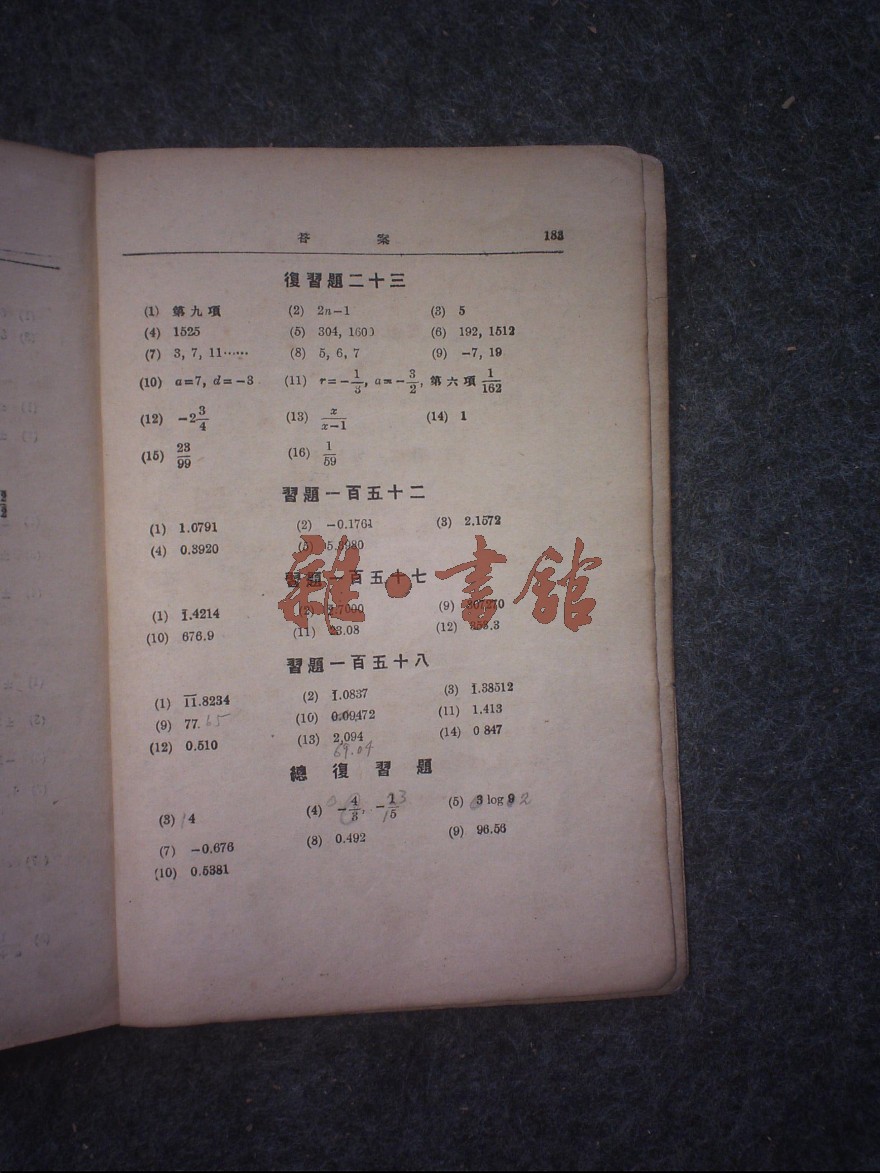 答 案 183
復習題二十三
(1) 第九項 (2) 2n-1 (3) 5
(4) 1525 (5) 304, 1600 (6) 192, 1512
(7) 3, 7, 11…… (8) 5, 6, 7 (9) -7, 19
(10) a=7, d=-3 (11) r=-1/3, a=-3/2, 第六項 1/162
(12) -2 3/4 (13) x/(x-1) (14) 1
(15) 23/99 (16) 1/59
習題一百五十二
(1) 1.0791 (2) -0.1761 (3) 2.1572
(4) 0.3920 (5) 5.3980
習題一百五十七
(1) 1̄.4214 (2) .7000 (9) 307270
(10) 676.9 (11) 23.08 (12) 353.3
雜·書館
習題一百五十八
(1) 1̄1̄.8234 (2) 1̄.0837 (3) 1̄.38512
(9) 77.65 (10) 0.09472 (11) 1.413
(12) 0.510 (13) 2,094 (14) 0 847
69.04
總復習題
(3) 14 (4) -4/3, -1/5 (5) 3 log 9
(7) -0.676 (8) 0.492 (9) 96.56
(10) 0.5381